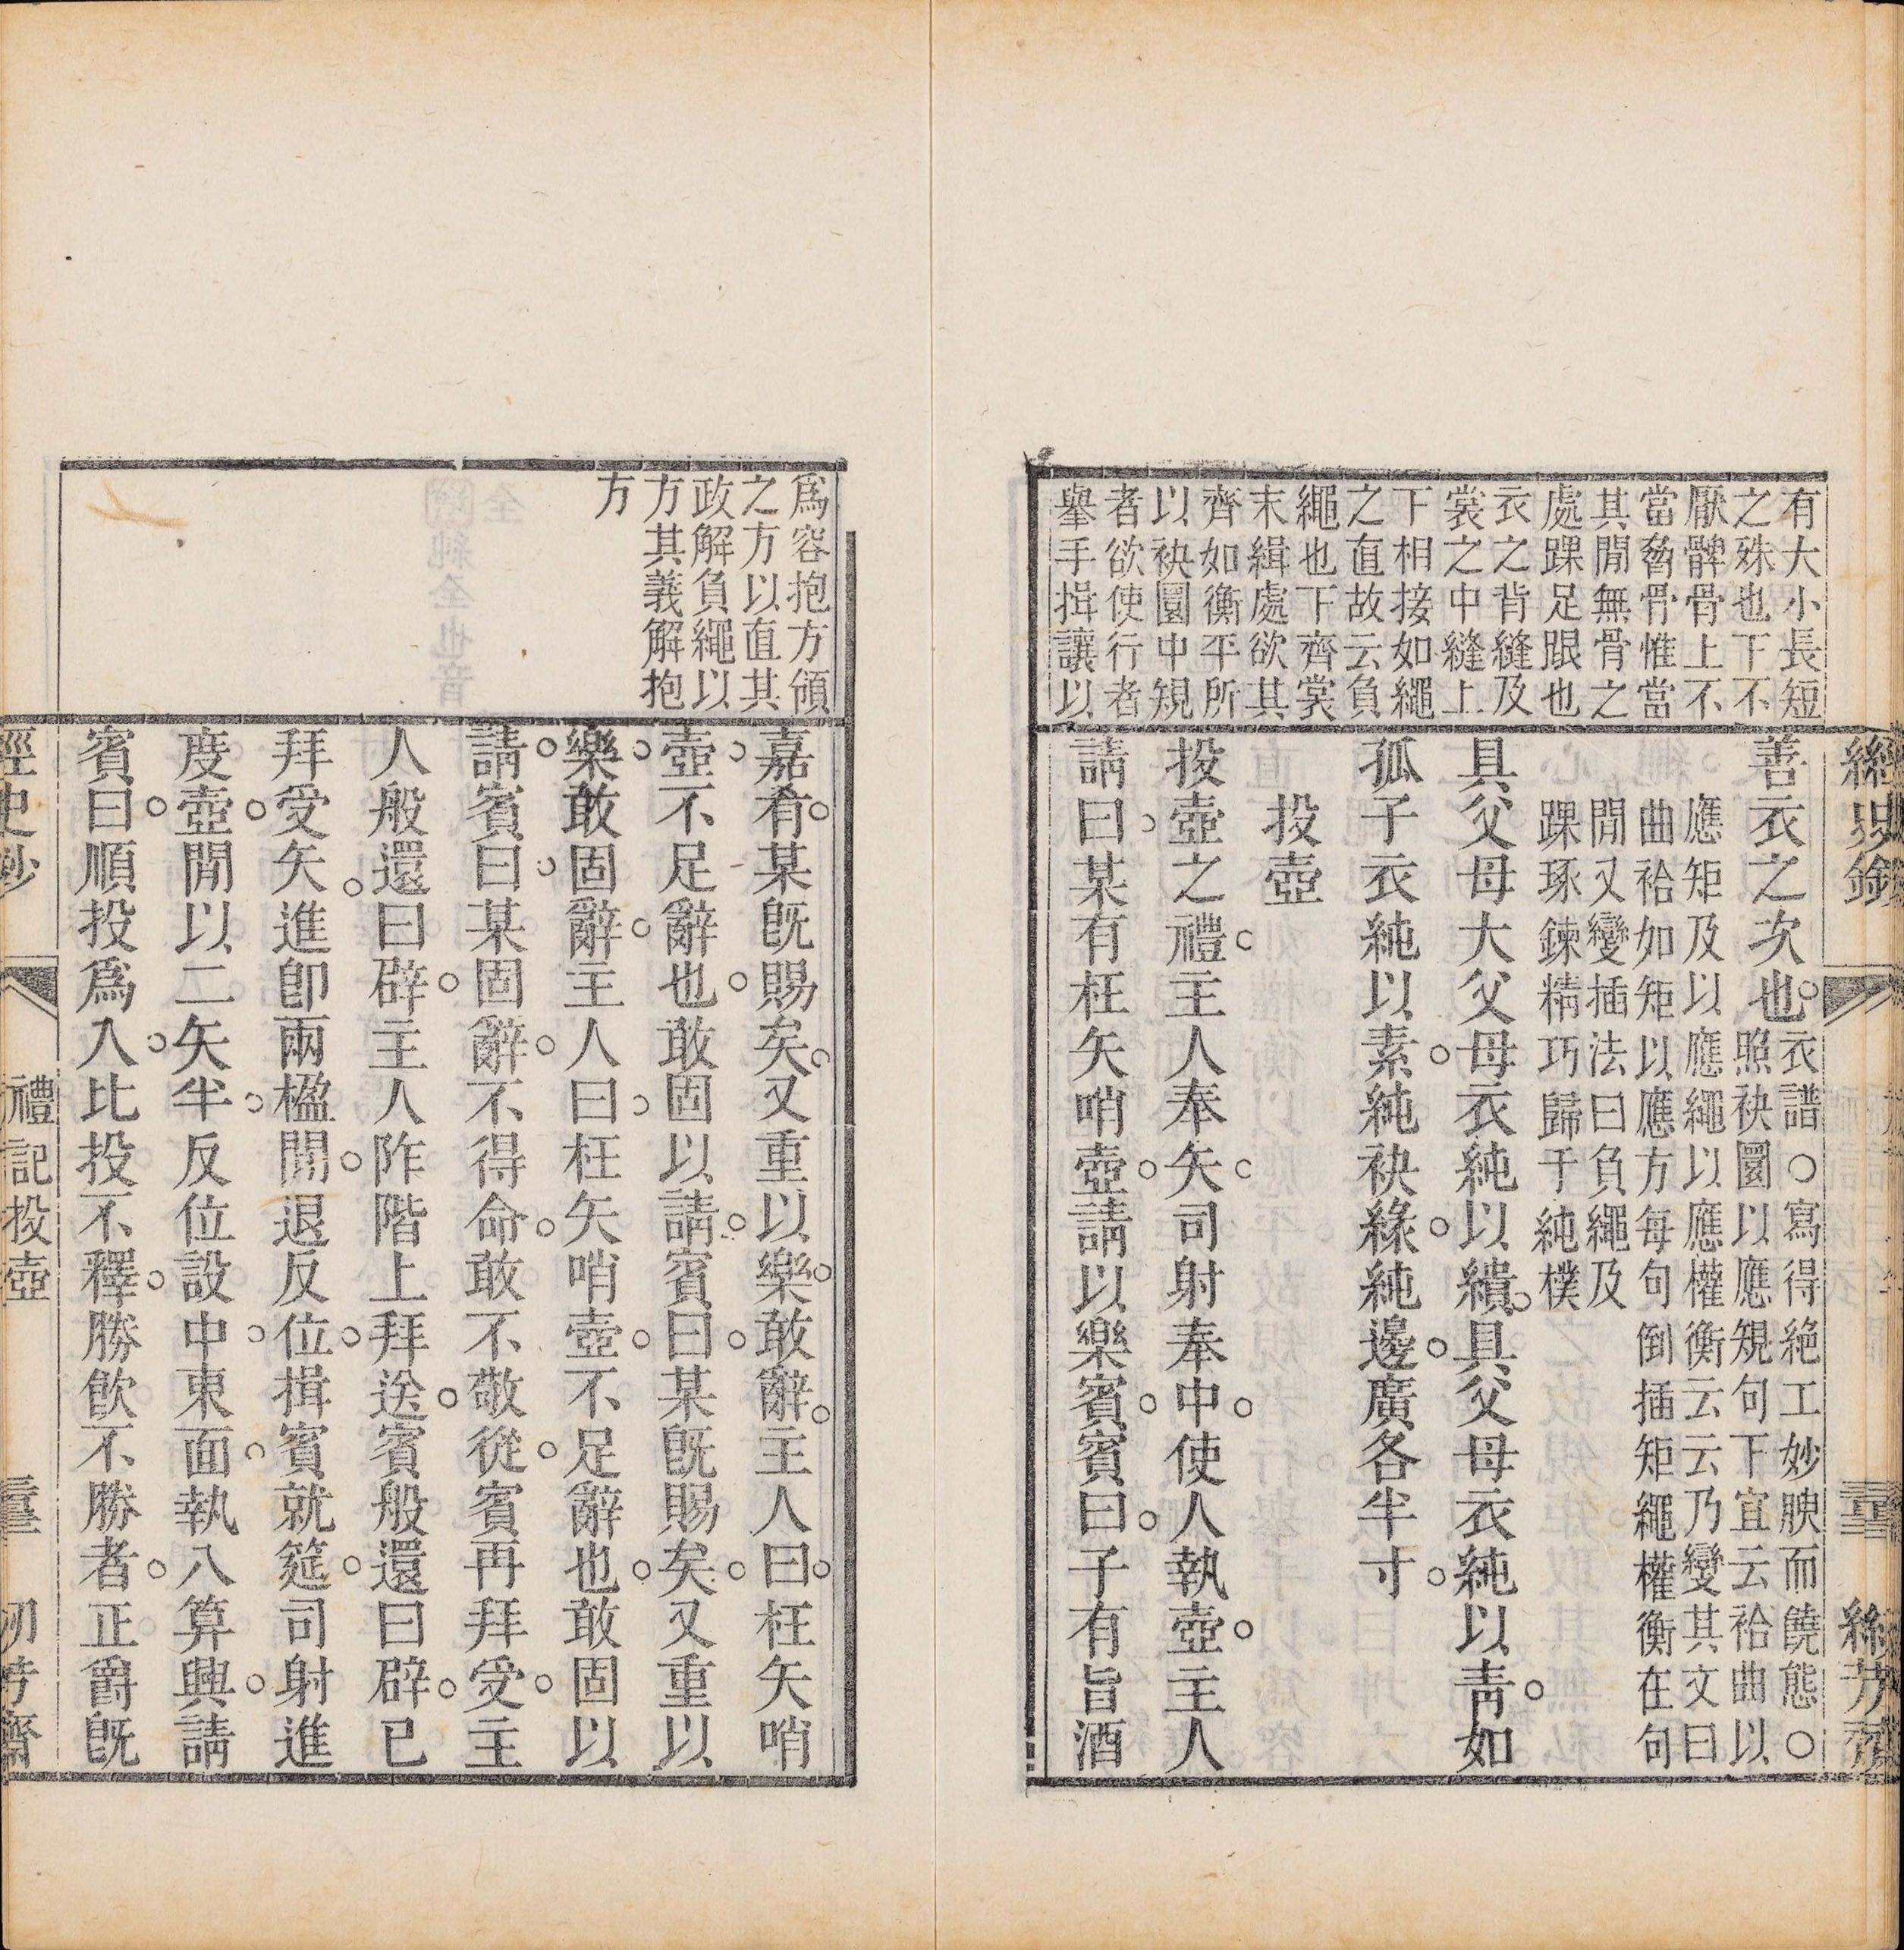 有大小長短
之殊也下不
厭髀骨上不
當脅骨惟當
其閒無骨之
處踝足跟也
衣之背縫及
裳之中縫上
下相接如繩
之直故云負
繩也下齊裳
末緝處欲其
齊如衡平所
以袂圜中規
者欲使行者
舉手揖讓以
善衣之次也
衣譜○寫得絶工妙腴而饒態○
照袂圜以應規句下宜云袷曲以
應矩及以應繩以應權衡云云乃變其文曰
曲袷如矩以應方每句倒插矩繩權衡在句
閒又變插法曰負繩及
踝琢鍊精巧歸于純樸
具父母大父母衣純以繢具父母衣純以靑如
孤子衣純以素純袂緣純邊廣各半寸
投壺
投壺之禮主人奉矢司射奉中使人執壺主人
請曰某有枉矢哨壺請以樂賓賓曰子有旨酒
爲容抱方領
之方以直其
政解負繩以
方其義解抱
方
嘉肴某旣賜矣又重以樂敢辭主人曰枉矢哨
壺不足辭也敢固以請賓曰某旣賜矣又重以
樂敢固辭主人曰枉矢哨壺不足辭也敢固以
請賓曰某固辭不得命敢不敬從賓再拜受主
人般還曰辟主人阼階上拜送賓般還曰辟已
拜受矢進卽兩楹閒退反位揖賓就筵司射進
度壺閒以二矢半反位設中東面執八算興請
賓曰順投爲入比投不釋勝飮不勝者正爵旣
經史鈔
禮記投壺